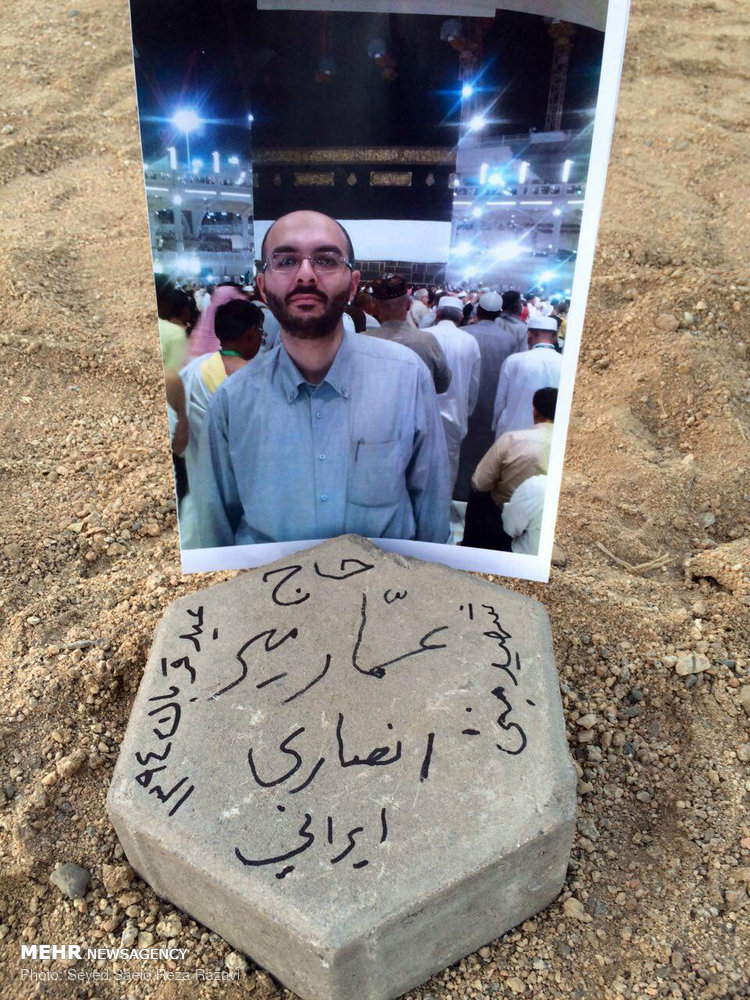 حاج
عمّار میر
انصاری
ایرانی
شهید منی
عید قربان ٩٤
MEHR NEWSAGENCY
Photo: Seyed Saeid Reza Razavi